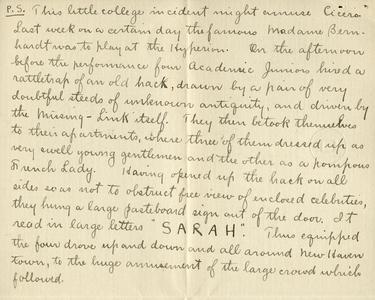 P.S. This little college incident might amuse Cicero.
Last week on a certain day the famous Madame Bern-
hardt was to play at the Hyperion. On the afternoon
before the performance four Academic Juniors hired a
rattletrap of an old hack, drawn by a pair of very
doubtful steeds of unknown antiquity, and driven by
the Missing-Link itself. They then betook themselves
to their apartments, where three of them dressed up as
very swell young gentlemen and the other as a pompous
French Lady. Having opened up the hack on all
sides so as not to obstruct free view of enclosed celebrities,
they hung a large pasteboard sign out of the door. It
read in large letters "SARAH". Thus equipped
the four drove up and down and all around New Haven
town, to the huge amusement of the large crowd which
followed.